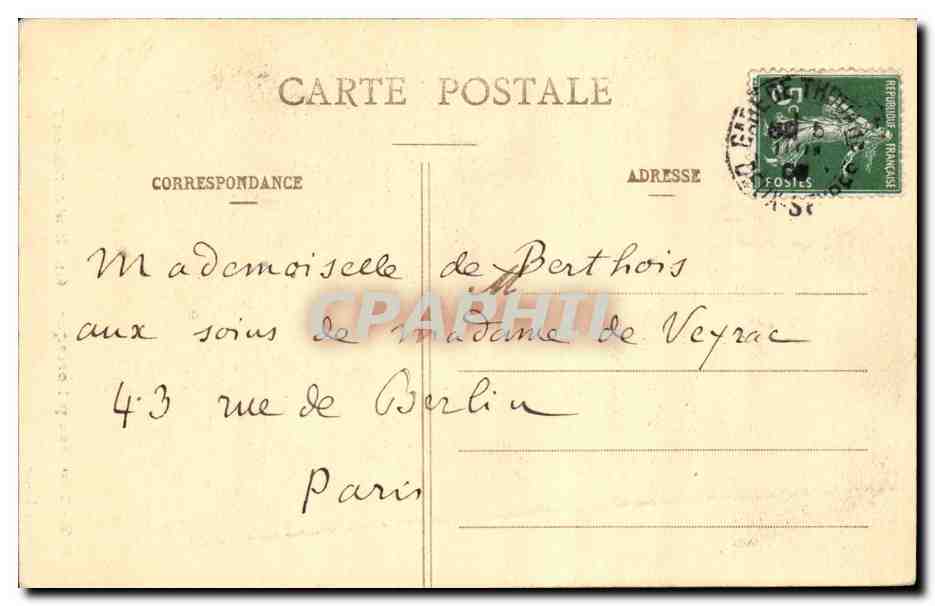 CARTE POSTALE
CORRESPONDANCE
ADRESSE
REPUBLIQUE FRANÇAISE
5c
POSTES
GARE DE
Mademoiselle de Berthois
aux soins de Madame de Veyrac
43 rue de Berlin
Paris
CPAPHIL